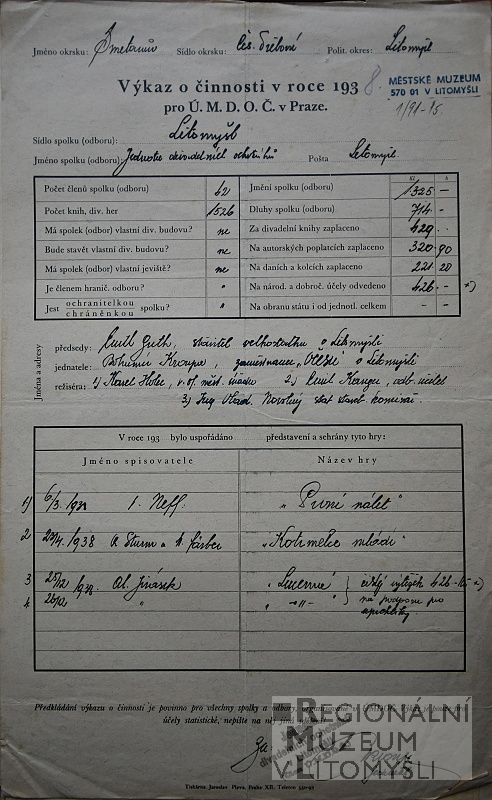 Jméno okrsku: Smetanův Sídlo okrsku: Čes. Třebové Polit. okres: Litomyšl
Výkaz o činnosti v roce 1938
pro Ú. M. D. O. Č. v Praze.
MĚSTSKÉ MUZEUM
570 01 V LITOMYŠLI
1/91-15
Sídlo spolku (odboru): Litomyšl
Jméno spolku (odboru): Jednota divadelních ochotníků Pošta Litomyšl.
Kč h
Počet členů spolku (odboru) 42 Jmění spolku (odboru) 1325 —
Počet knih, div. her 1526 Dluhy spolku (odboru) 714 —
Má spolek (odbor) vlastní div. budovu? ne Za divadelní knihy zaplaceno 429 —
Bude stavět vlastní div. budovu? ne Na autorských poplatcích zaplaceno 320 90
Má spolek (odbor) vlastní jeviště? ne Na daních a kolcích zaplaceno 221 28
Je členem hranič. odboru? " Na národ. a dobroč. účely odvedeno 426 — x)
Jest ochranitelkou chráněnkou spolku? " Na obranu státu i od jednotl. celkem — —
Jména a adresy
předsedy: Emil
jednatele: Bohumír Kroupa, zaměstnanec v Litomyšli
režiséra: 1) Karel 2) Emil
3) Ing Vlad. Novotný stát. stavb. komisař.
V roce 193 bylo uspořádáno představení a sehrány tyto hry:
Jméno spisovatele Název hry
1) 6/3. 1938 Neff: „První nálet"
2 1938 „Kotrmelce mládí"
3 25/12 1938 Al. Jirásek „Lucerna" čistý výtěžek 426·15 x)
4 26/12 " „ —"— " na podporu pro uprchlíky.
Předkládání výkazu o činnosti je povinno pro všechny spolky a odbory, organisované v ÚMDOČ. Výkaz je pouze pro
účely statistické, nepište na něj jiná
Za
REGIONÁLNÍ
MUZEUM
V LITOMYŠLI
Tiskárna Jaroslav Pleva, Praha XII.